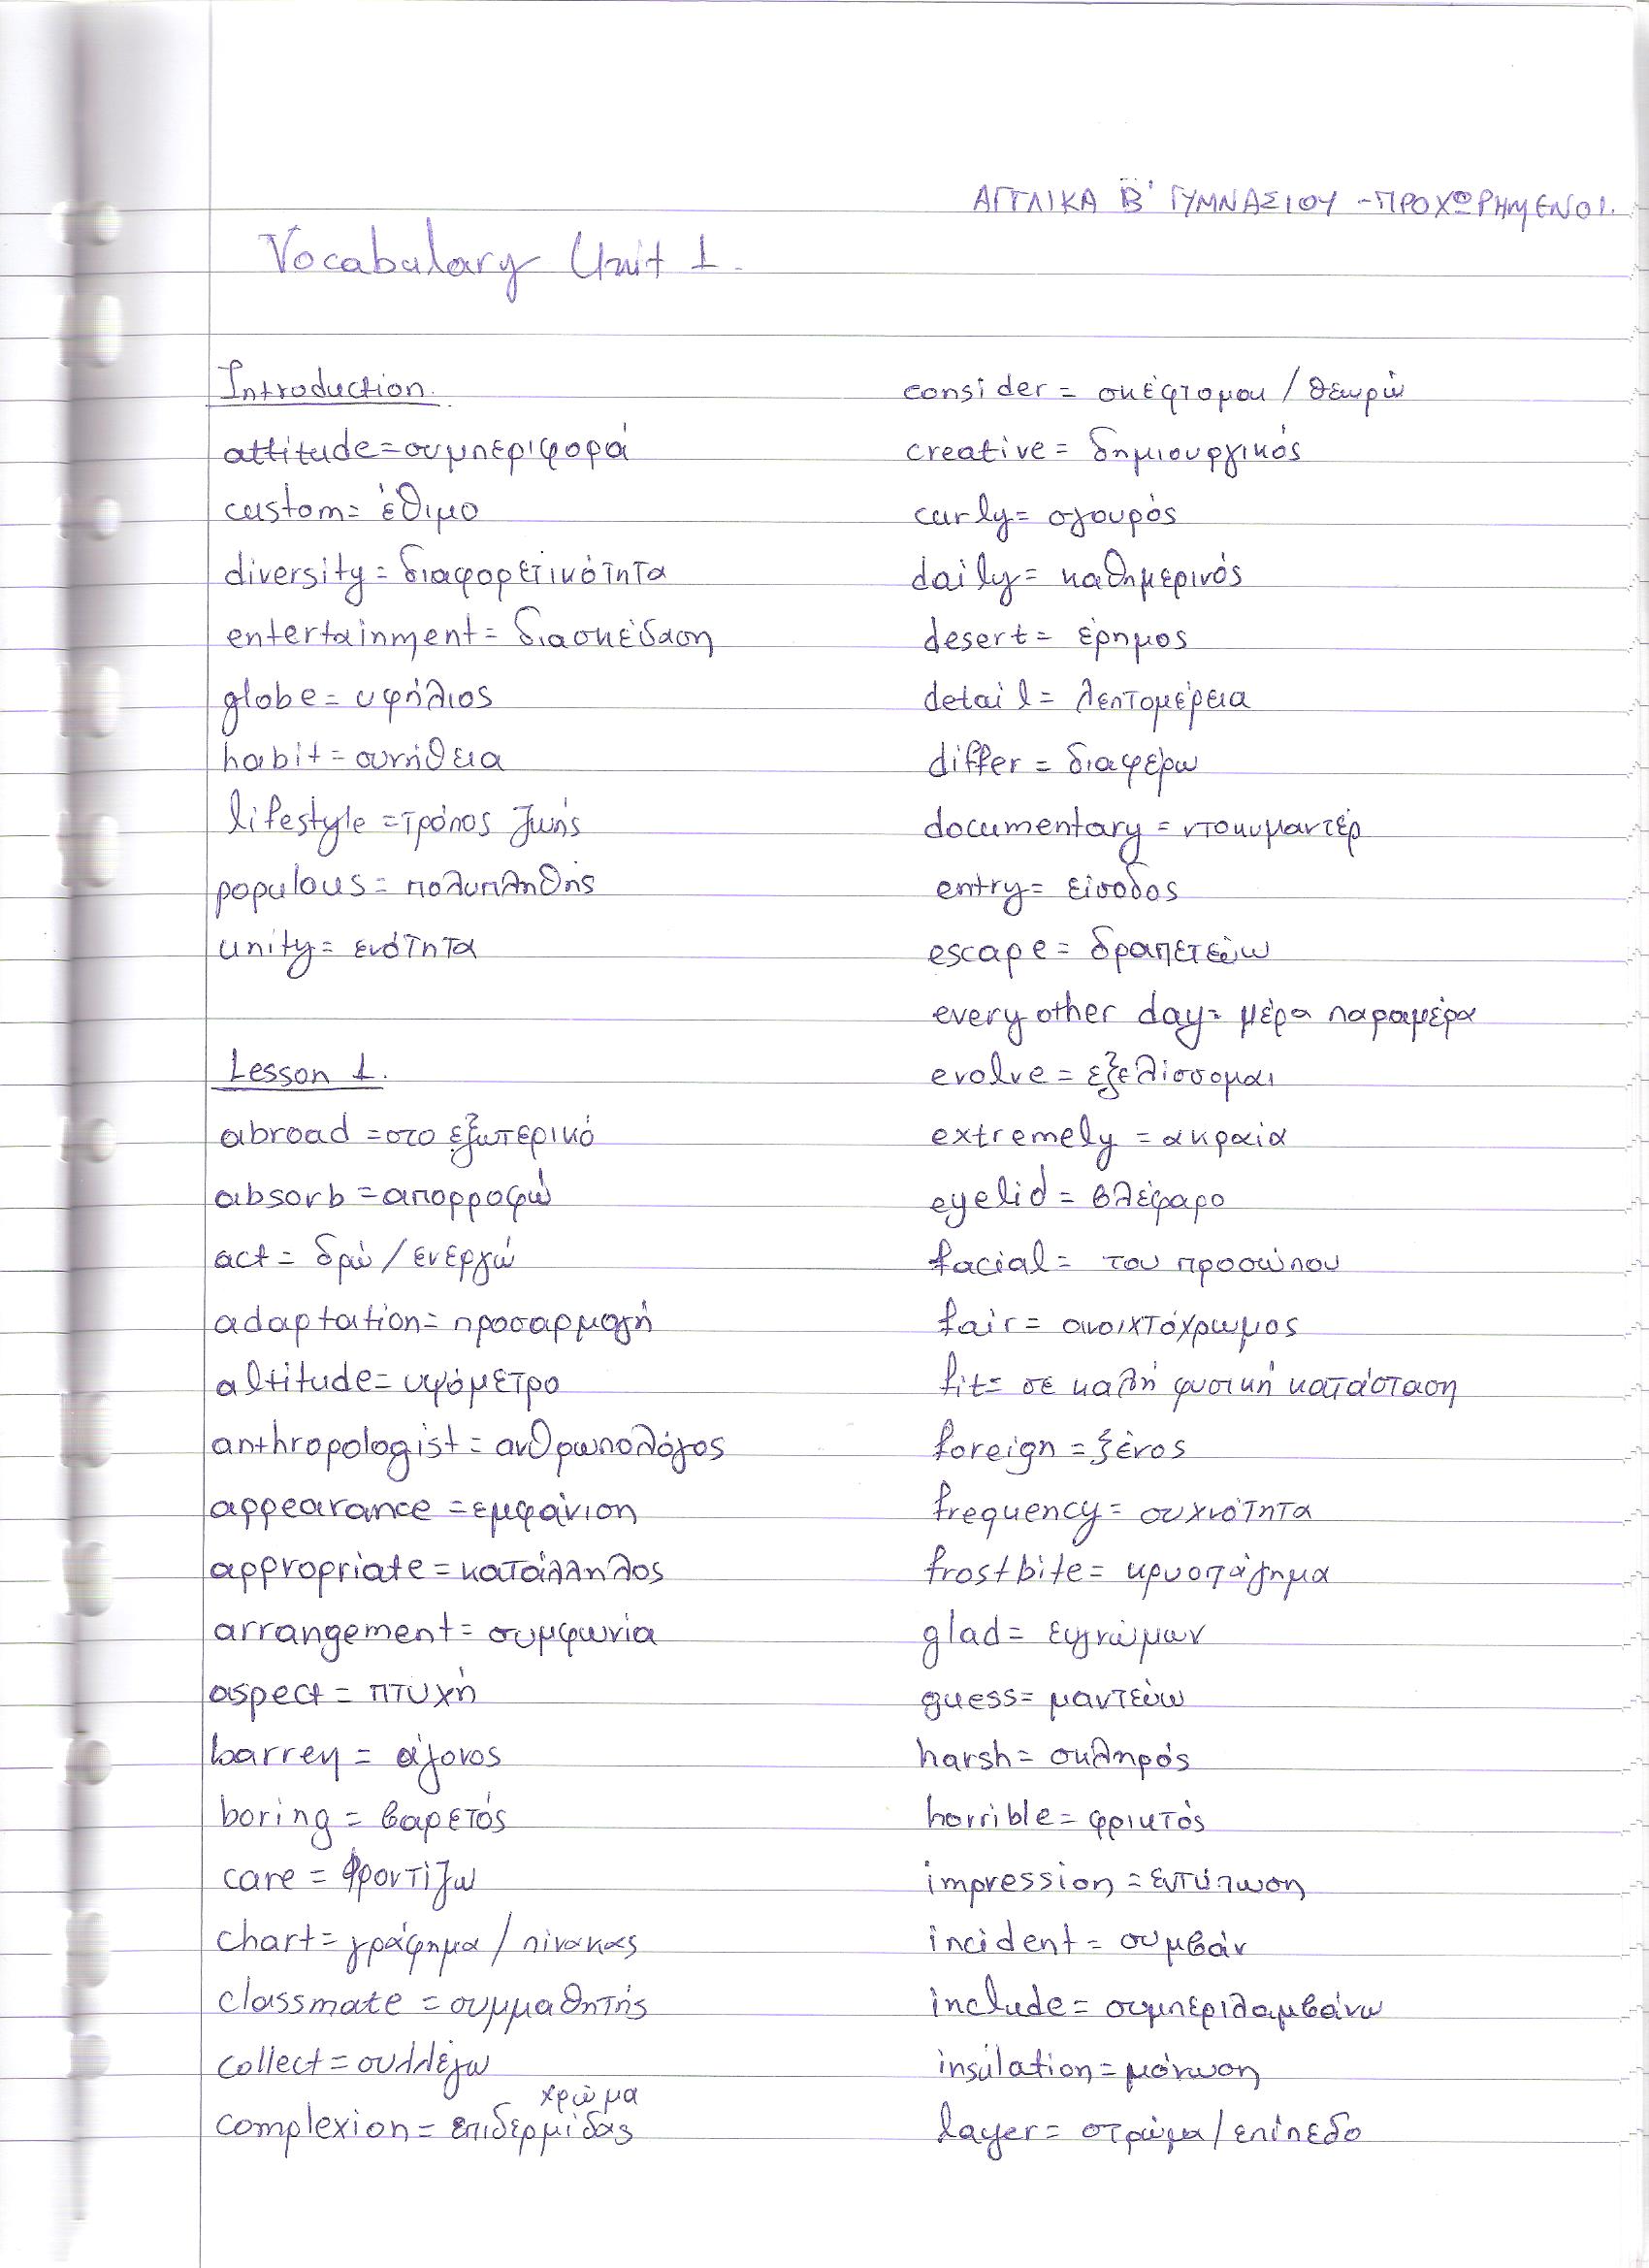 ΑΓΓΛΙΚΑ Β' ΓΥΜΝΑΣΙΟΥ - ΠΡΟΧΩΡΗΜΕΝΟΙ.
Vocabulary Unit 1.
Introduction.
attitude = συμπεριφορά
custom = έθιμο
diversity = διαφορετικότητα
entertainment = διασκέδαση
globe = υφήλιος
habit = συνήθεια
lifestyle = τρόπος ζωής
populous = πολυπληθής
unity = ενότητα
Lesson 1.
abroad = στο εξωτερικό
absorb = απορροφώ
act = δρω / ενεργώ
adaptation = προσαρμογή
altitude = υψόμετρο
anthropologist = ανθρωπολόγος
appearance = εμφάνιση
appropriate = κατάλληλος
arrangement = συμφωνία
aspect = πτυχή
barren = άγονος
boring = βαρετός
care = Φροντίζω
chart = γράφημα / πίνακας
classmate = συμμαθητής
collect = συλλέγω
χρώμα
complexion = επιδερμίδας
consider = σκέφτομαι / θεωρώ
creative = δημιουργικός
curly = σγουρός
daily = καθημερινός
desert = έρημος
detail = λεπτομέρεια
differ = διαφέρω
documentary = ντοκυμαντέρ
entry = είσοδος
escape = δραπετεύω
every other day = μέρα παραμέρα
evolve = εξελίσσομαι
extremely = ακραία
eyelid = βλέφαρο
facial = του προσώπου
fair = ανοιχτόχρωμος
fit = σε καλή φυσική κατάσταση
foreign = ξένος
frequency = συχνότητα
frostbite = κρυοπάγημα
glad = ευγνώμων
guess = μαντεύω
harsh = σκληρός
horrible = φρικτός
impression = εντύπωση
incident = συμβάν
include = συμπεριλαμβάνω
insulation = μόνωση
layer = στρώμα / επίπεδο